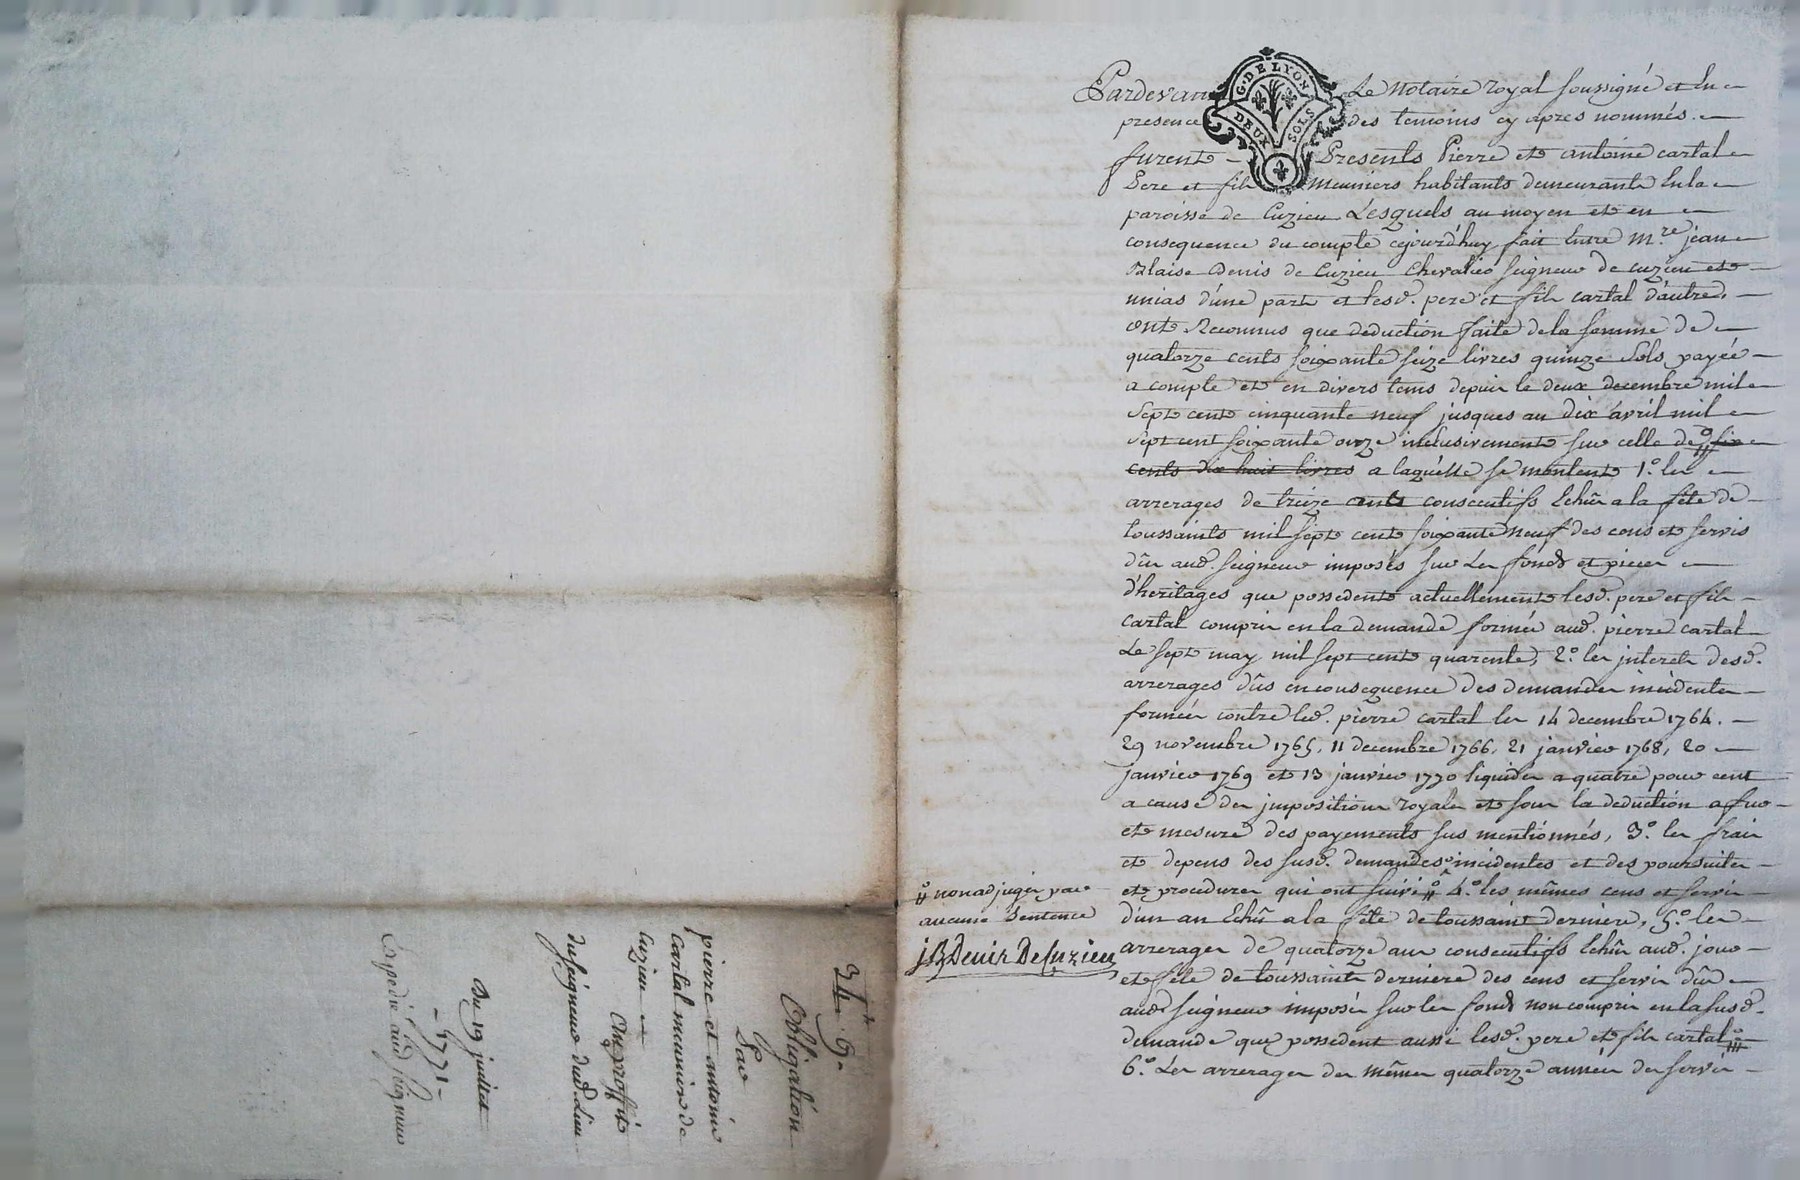 G. DE LYON
DEUX SOLS
Pardevant Le Notaire royal soussigné et en
presence des temoins cy apres nommés.
furent Presents Pierre et antoine cartal
Pere et fils meuniers habitants demeurants en la
paroisse de Cuzieu Lesquels au moyen et en
consequence du compte cejourd'huy fait Entre m.re jean
Blaise Denis de Cuzieu Chevalier seigneur de cuzieu et
unias d'une part et lesd. pere et fils cartal d'autre,
ont Reconnus que deduction faite de la somme de
quatorze cents soixante seize livres quinze sols payée
a compte et en divers tems depuis le deux decembre mil
sept cent cinquante neuf jusques au dix avril mil
sept cent soixante onze inclusivement sur celle de six
cents dix huit livres a laquelle se montent 1.° les
arrerages de treize ants consecutifs Echûs a la fête de
toussaints mil sept cent soixante neuf des cens et servis
dûs aud. seigneur imposés sur les fonds et pieces
d'heritages que possedents actuellements lesd. pere et fils
cartal compris en la demande formée aud. pierre cartal
Le sept may mil sept cents quarente, 2.° les interets desd.
arrerages dûs en consequence des demandes incidentes
formées contre led. pierre cartal les 14 decembre 1764.
29 novembre 1765, 11 decembre 1766, 21 janvier 1768, 20
janvier 1769 et 13 janvier 1770 liquidés a quatre pour cent
a cause des impositions royales et sous la deduction a fur
et mesure des payements sus mentionnés, 3.° les frais
et depens des susd. demandes incidentes et des poursuites
et procedures qui ont suivi 4.° les mêmes cens et servis
d'un an Echû a la fête de toussaint derniere, 5.° les
arrerages de quatorze ans consecutifs Echûs aud. jour
et fête de toussaints derniere des cens et servis dûs
aud. seigneur imposés sur les fonds non compris en la susd.
demande que possedent aussi lesd. pere et fils cartal
6.° Les arrerages des mêmes quatorze années de servis
non adjugés par
aucune Sentence
JB Denis De Cuzieu
Obligation
Par
pierre et antoine
cartal meuniers de
Cuzieu
Au proffit
du seigneur dud. lieu
Du 19 juillet
1771
Expedié aud. seigneur